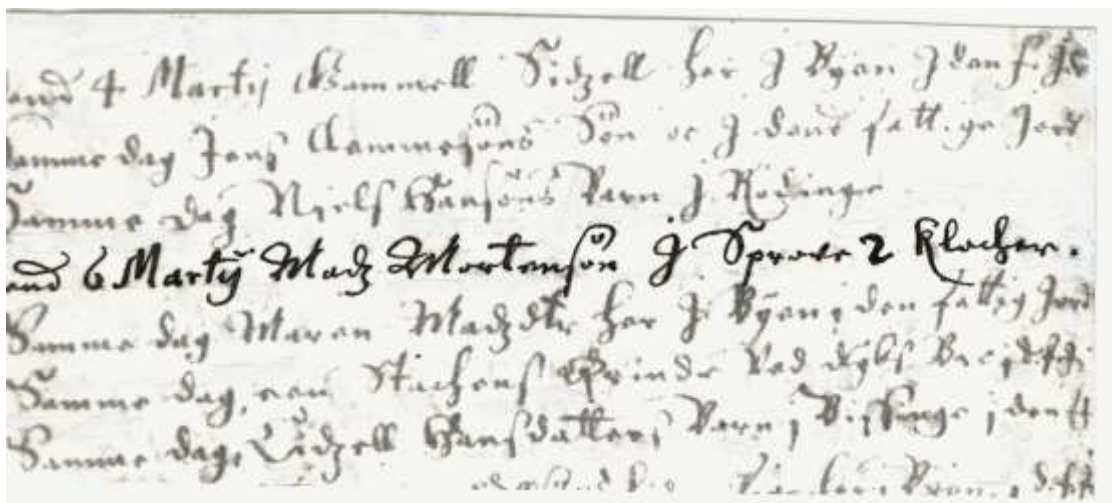 and 4 Martij Gammell Sidzell her J Byen J den f. Jo
Samme dag Jens Clemmesöns Sön oc J dend fattige Jord
Samme dag Niels Hansöns Barn J Rödinge
and 6 Martij Madz Mortensön J Sprove 2 Klocher.
Samme dag Maren Madzdtr her J Byen j den fattig Jord
Samme dag, een Stachens Qvinde ved
Samme dag, Sidzell Hansdatters Barn j Bissinge j den ff